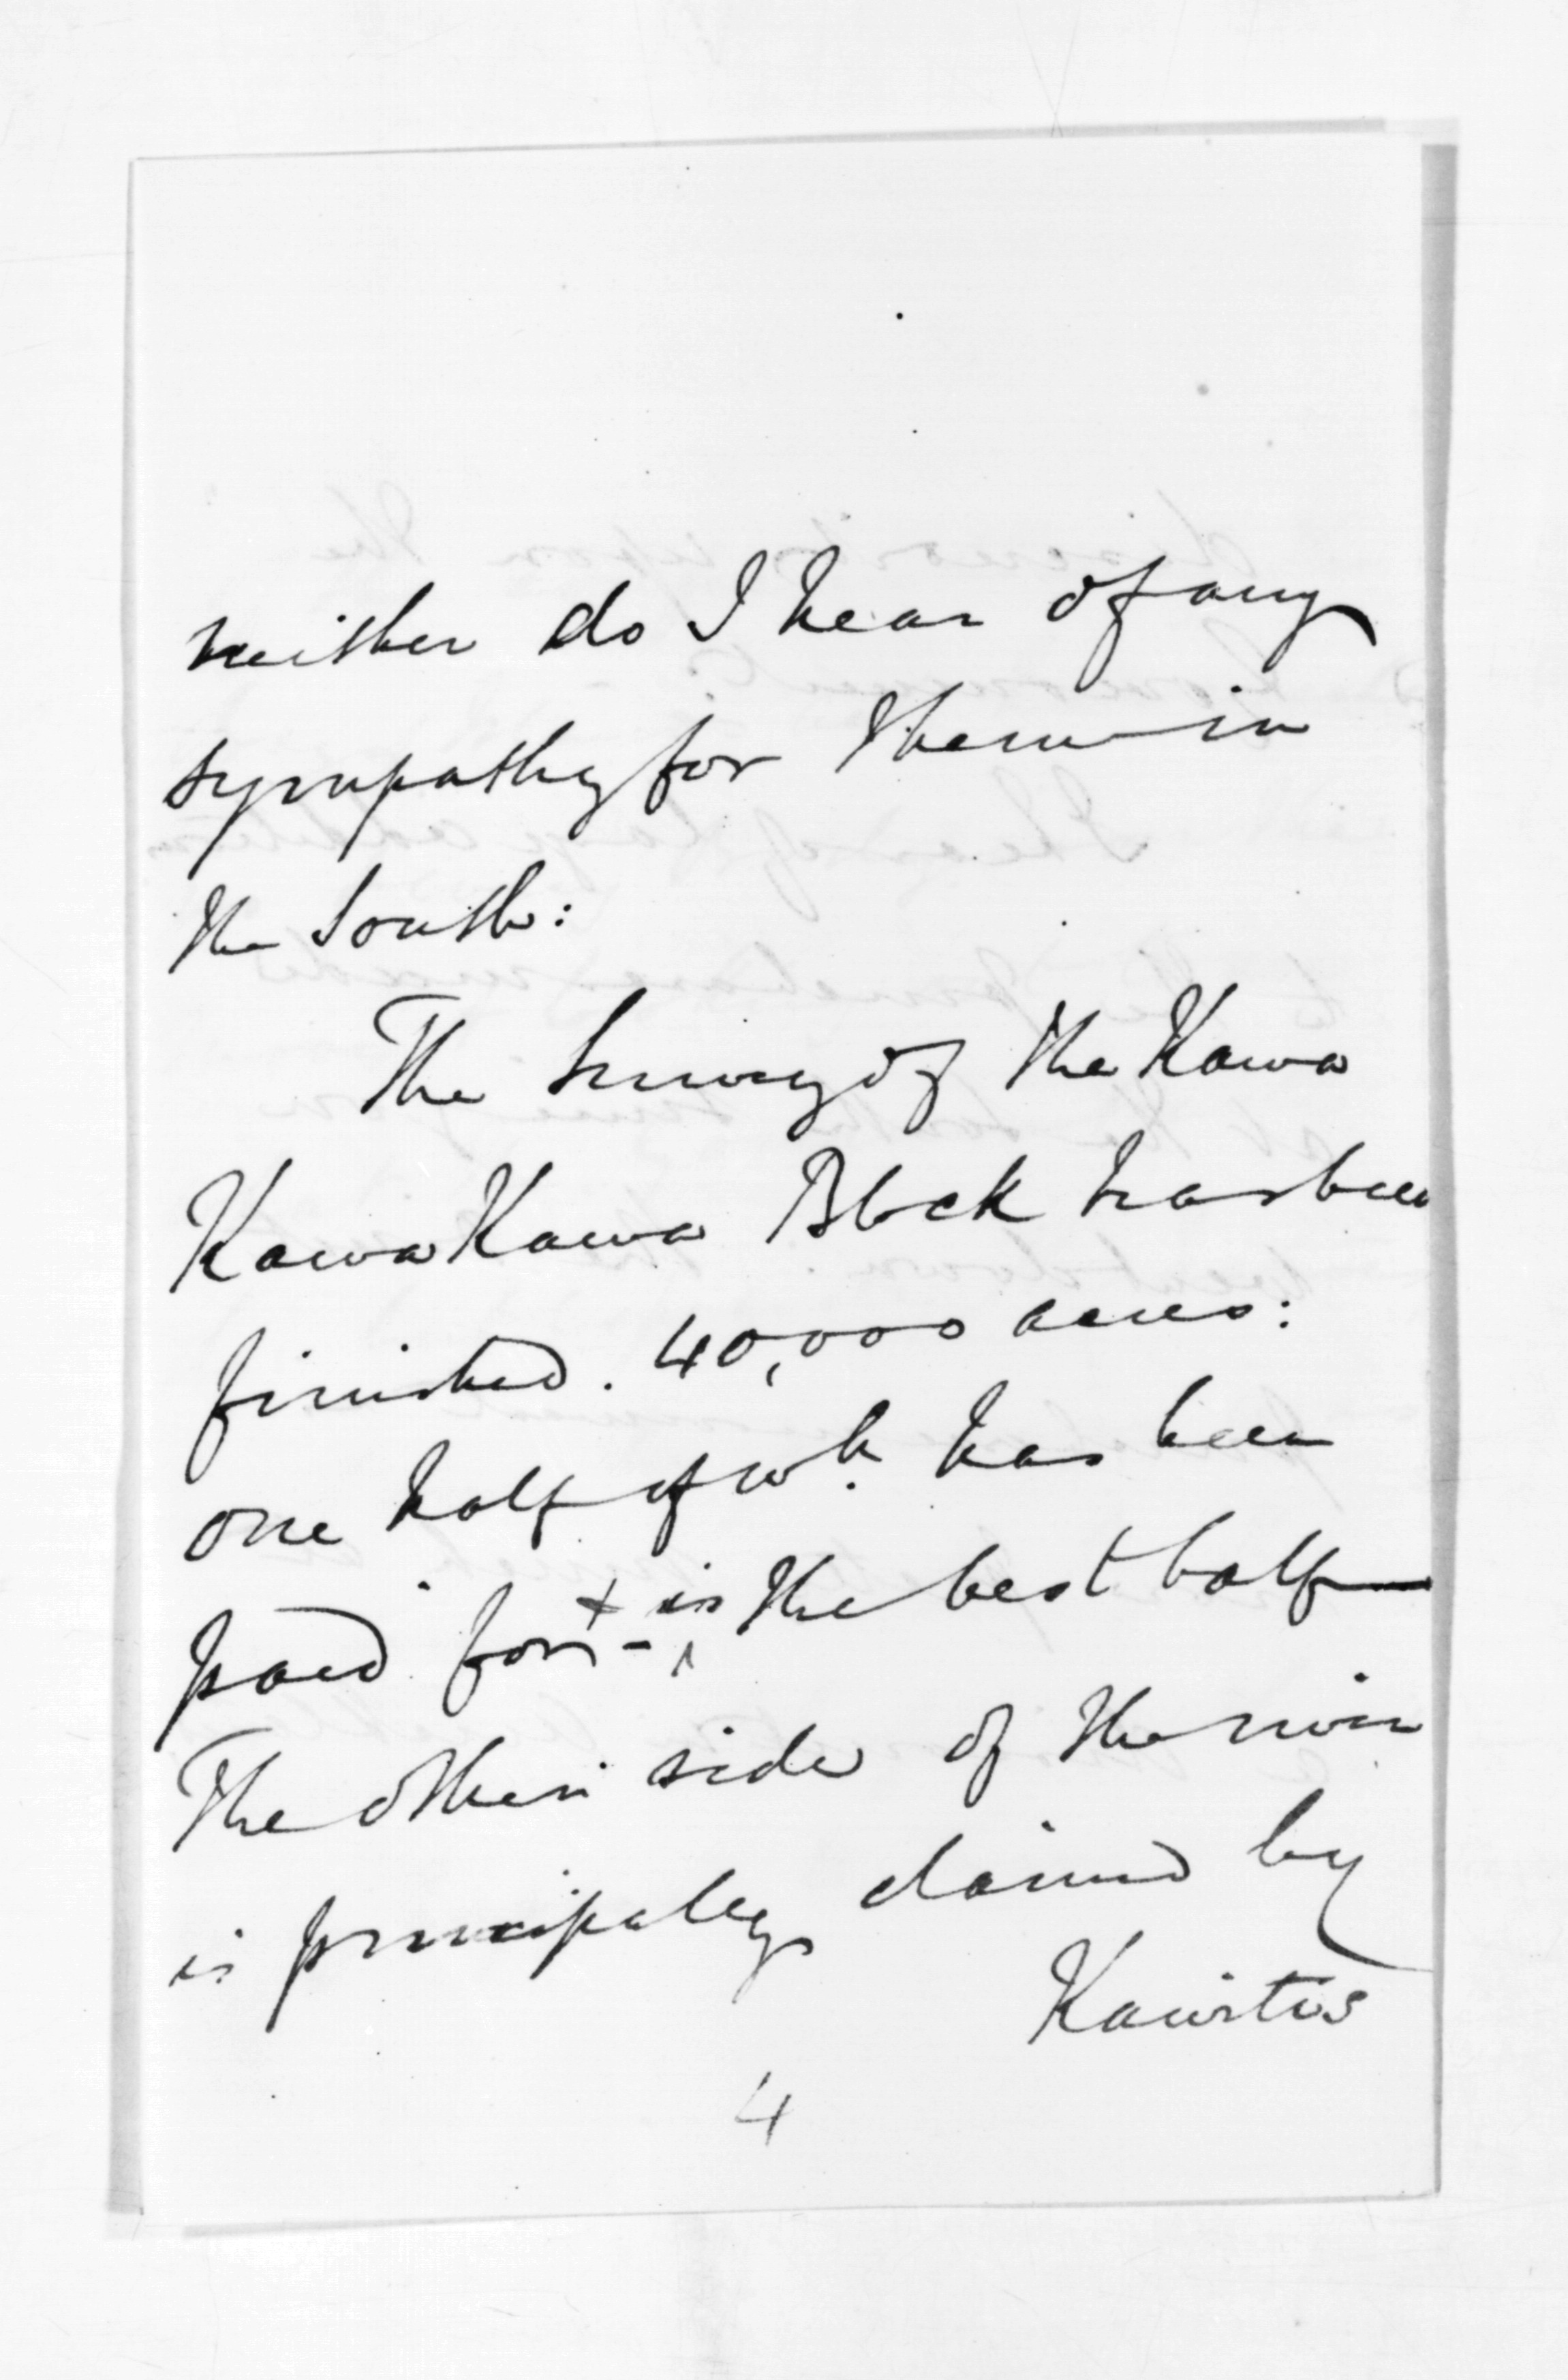 neither do I hear of any
sympathy for them in
the South:
The Survey of the Kawa
Kawa Kawa Block has been
finished. 40,000 acres:
one half of wh. has been
paid for & - is the best half
The other side of the river
is principaly claimed by
Kawitis
4